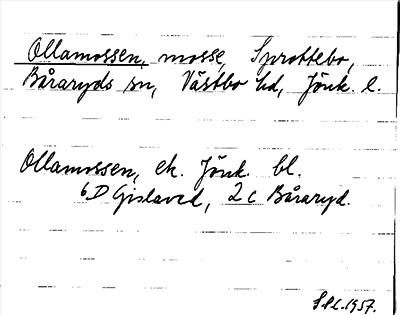 Ollamossen, mosse, Sprottebo,
Båraryds sn, Västbo hd, Jönk. l.
Ollamossen, ek. Jönk. bl.
6D Gislaved, 2c Båraryd.
1957.